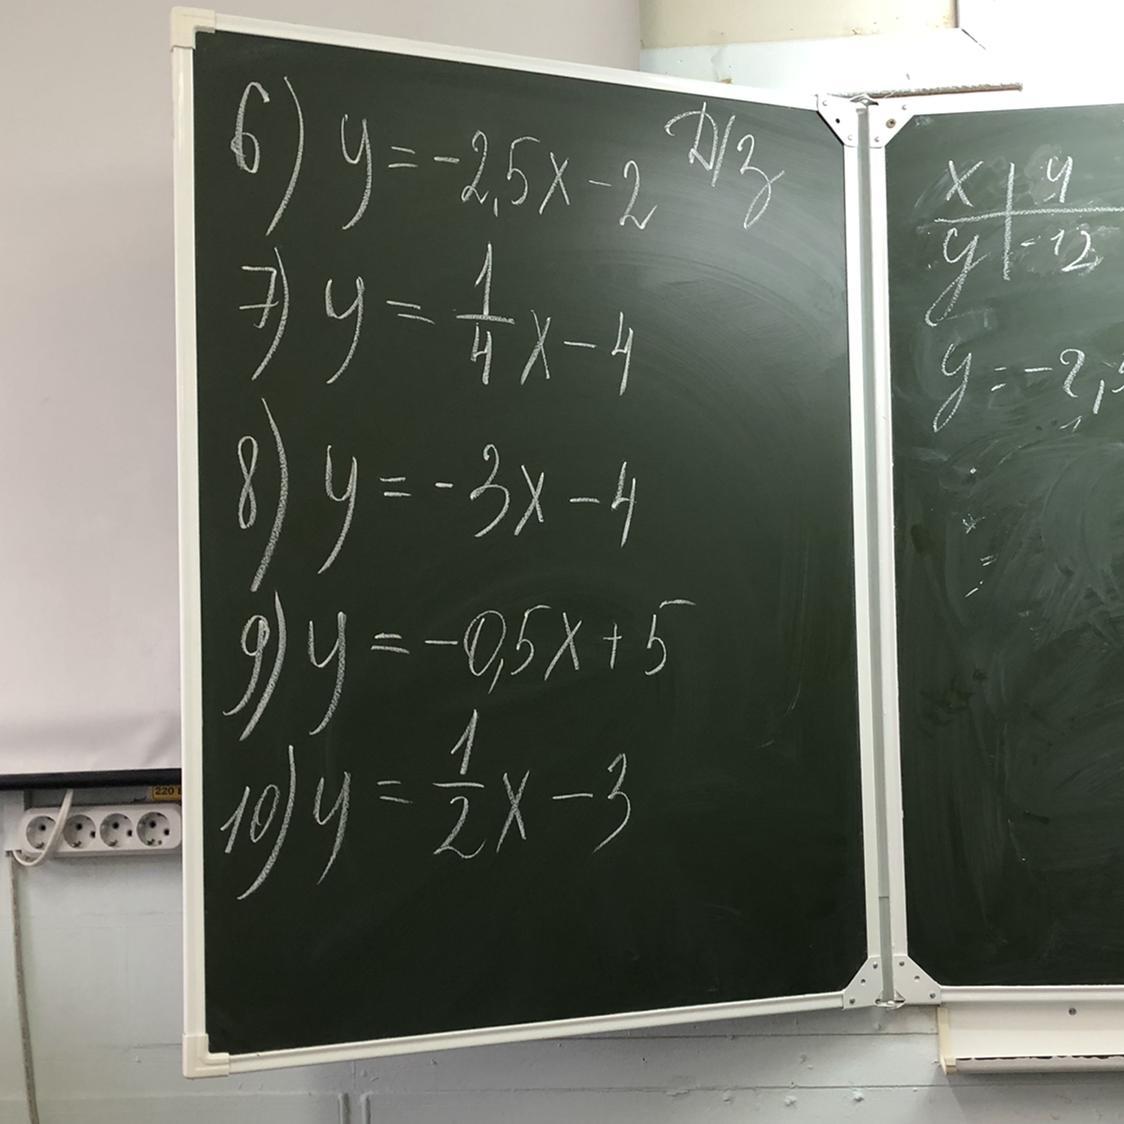 6) y = -2,5x - 2 Д/з
7) y = 1/4 x - 4
8) y = -3x - 4
9) y = -0,5x + 5
10) y = 1/2 x - 3
x | 4
y | -12
y = -2,5
220